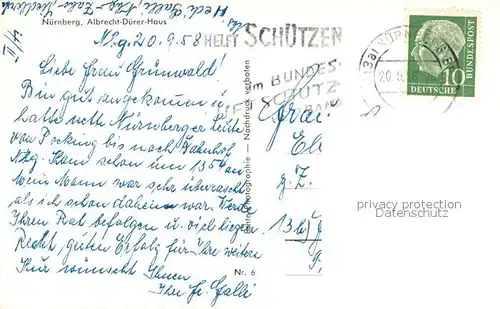 Nürnberg, Albrecht-Dürer-Haus
Nbg. 20.9.58
Liebe Frau Grünwald!
Bin gut angekommen u.
hatte nette Nürnberger Leute
von Pocking bis nach Bahnhof
Nbg. Kam schon um 13 54 an
Mein Mann war sehr überrascht
als ich schon daheim war. Werde
Ihren Rat befolgen u. viel liegen.
Recht guten Erfolg für Ihre weitere
Kur wünscht Ihnen
Ihre Fr. Galli
HELFT SCHÜTZEN
im BUNDES-
SCHUTZ-
Echte Photographie – Nachdruck verboten
Nr. 6
Frau
El
z. Z.
13b)
(13a) NÜRNBERG
20.9.58
DEUTSCHE
BUNDESPOST
10
privacy protection
Datenschutz